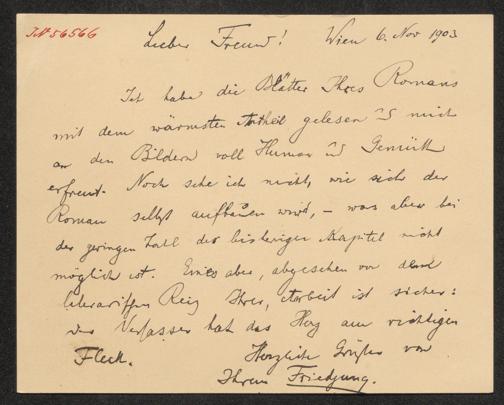 IN 56566
Lieber Freund! Wien 6. Nov 1903
Ich habe die Blätter Ihres Romans
mit dem wärmsten Antheil gelesen u mich
an den Bildern voll Humor u Gemüth
erfreut. Noch sehe ich nicht, wie sich der
Roman selbst aufbauen wird, – was aber bei
der geringen Zahl der bisherigen Kapitel nicht
möglich ist. Eines aber, abgesehen von dem
literarischen Reiz Ihrer Arbeit ist sicher:
der Verfasser hat das Herz am richtigen
Fleck. Herzliche Grüße von
Ihrem Friedjung.